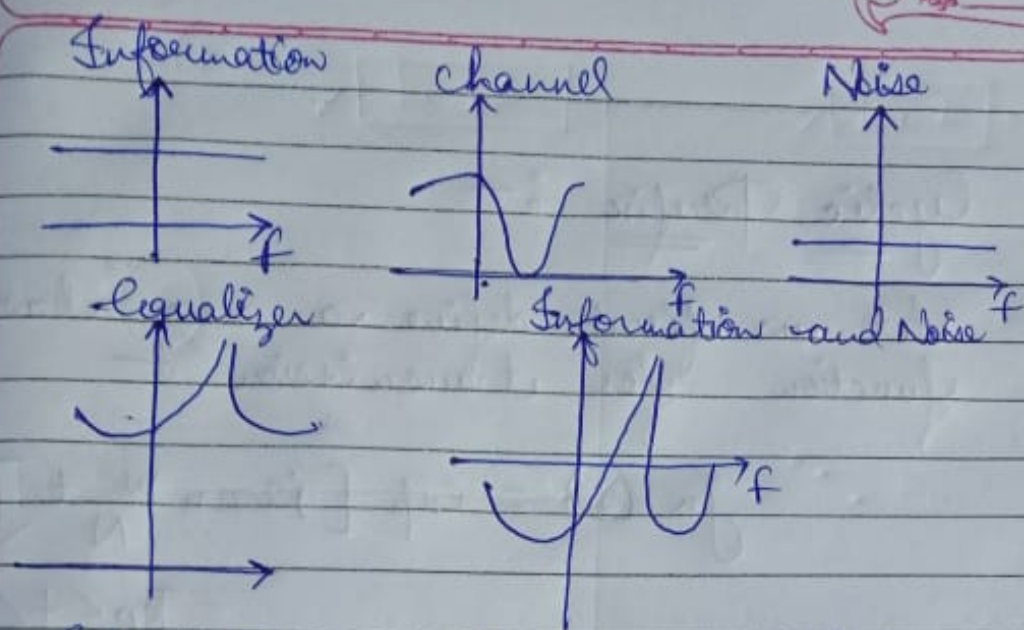 Information
Channel
Noise
f
f
f
Equalizer
Information and Noise
f